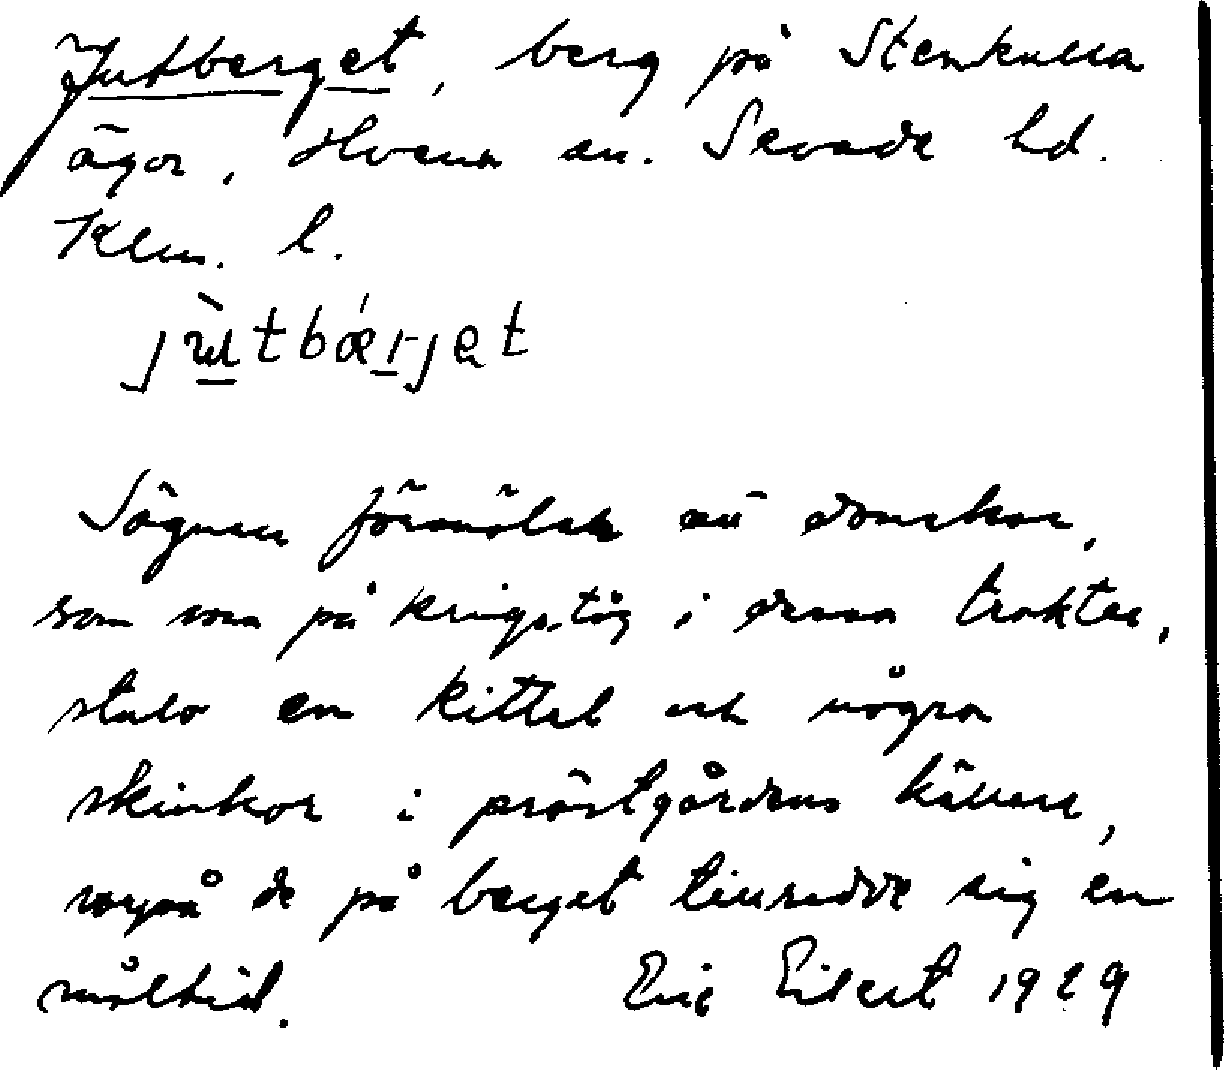 Jutberget, berg på Stenkulla
ägor, Hvena sn. Sevede hd.
Klm. l.
jùtbǽrjet
Sägnen förmäler att danskar,
som voro på krigståg i denna trakten,
stulo en kittel och några
skinkor i prästgårdens källare,
varpå de på berget tillredde sig en
måltid. Eric Eilert 1929